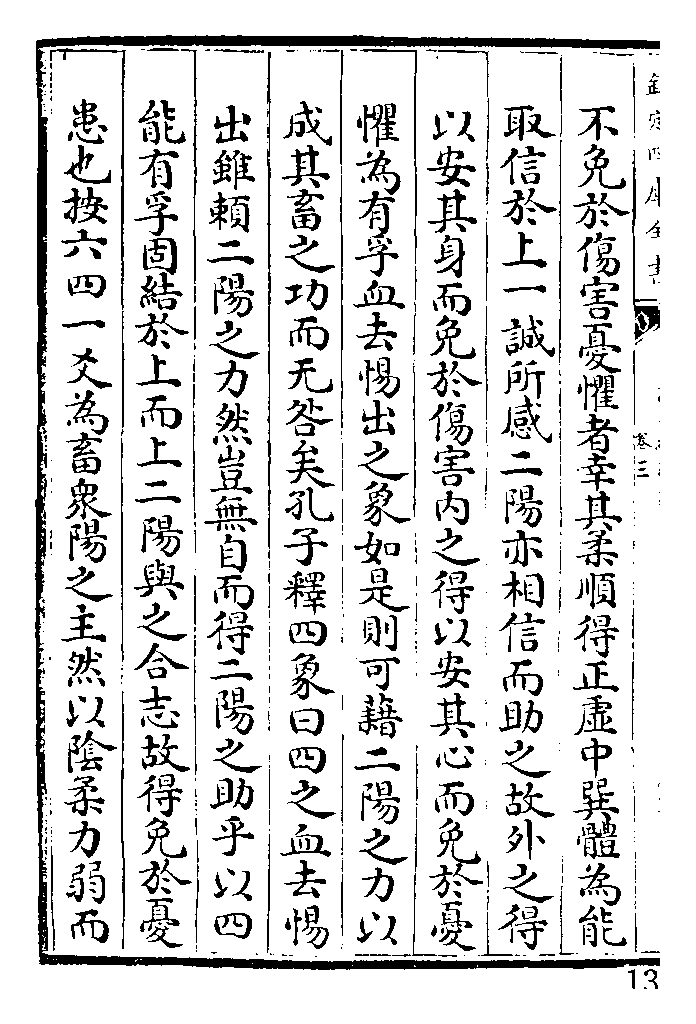 欽定四庫全書
卷三
不免於傷害憂懼者幸其柔順得正虛中巽體為能
取信於上一誠所感二陽亦相信而助之故外之得
以安其身而免於傷害内之得以安其心而免於憂
懼為有孚血去惕出之象如是則可藉二陽之力以
成其畜之功而无咎矣孔子釋四象曰四之血去惕
出雖頼二陽之力然豈無自而得二陽之助乎以四
能有孚固結於上而上二陽與之合志故得免於憂
患也按六四一爻為畜衆陽之主然以陰柔力弱而
13